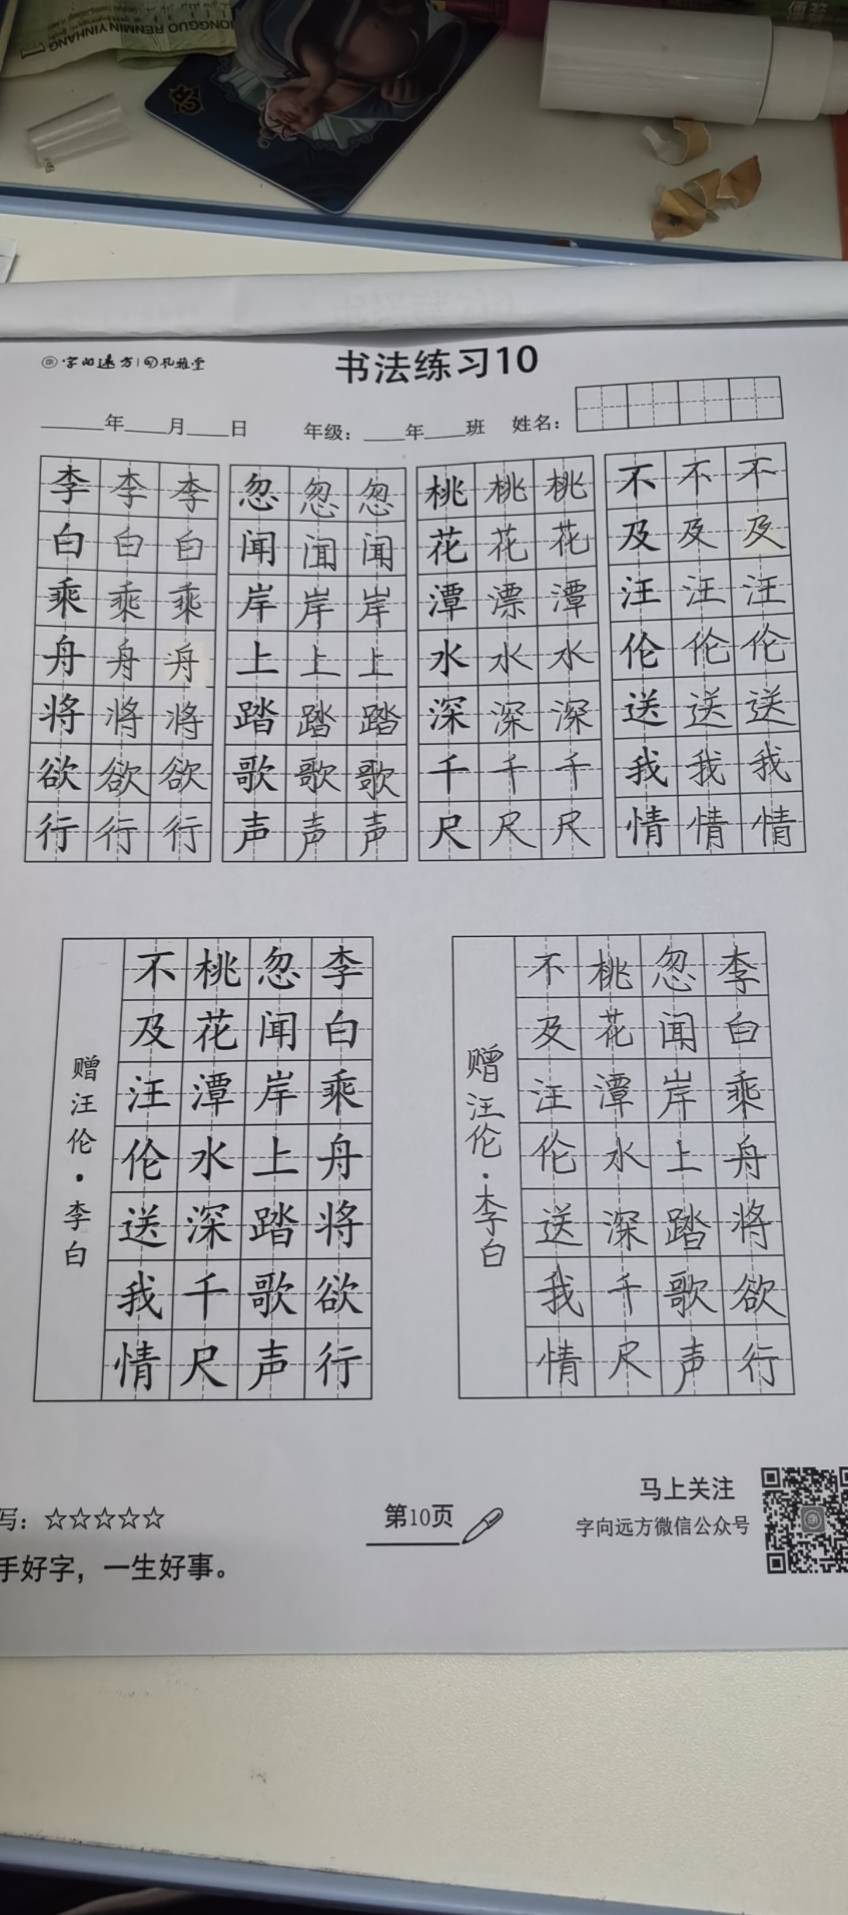 ZHONGGUO RENMIN YINHANG
字向远方
书法练习10
年 月 日 年级： 年 班 姓名：
李李李 忽忽忽 桃桃桃 不不不
白白白 闻闻闻 花花花 及及及
乘乘乘 岸岸岸 潭漂潭 汪汪汪
舟舟舟 上上上 水水水 伦伦伦
将将将 踏踏踏 深深深 送送送
欲欲欲 歌歌歌 千千千 我我我
行行行 声声声 尺尺尺 情情情
李白乘舟将欲行
忽闻岸上踏歌声
桃花潭水深千尺
不及汪伦送我情
赠汪伦·李白
李白乘舟将欲行
忽闻岸上踏歌声
桃花潭水深千尺
不及汪伦送我情
赠汪伦·李白
写：☆☆☆☆☆
手好字，一生好事。
第10页
马上关注
字向远方微信公众号